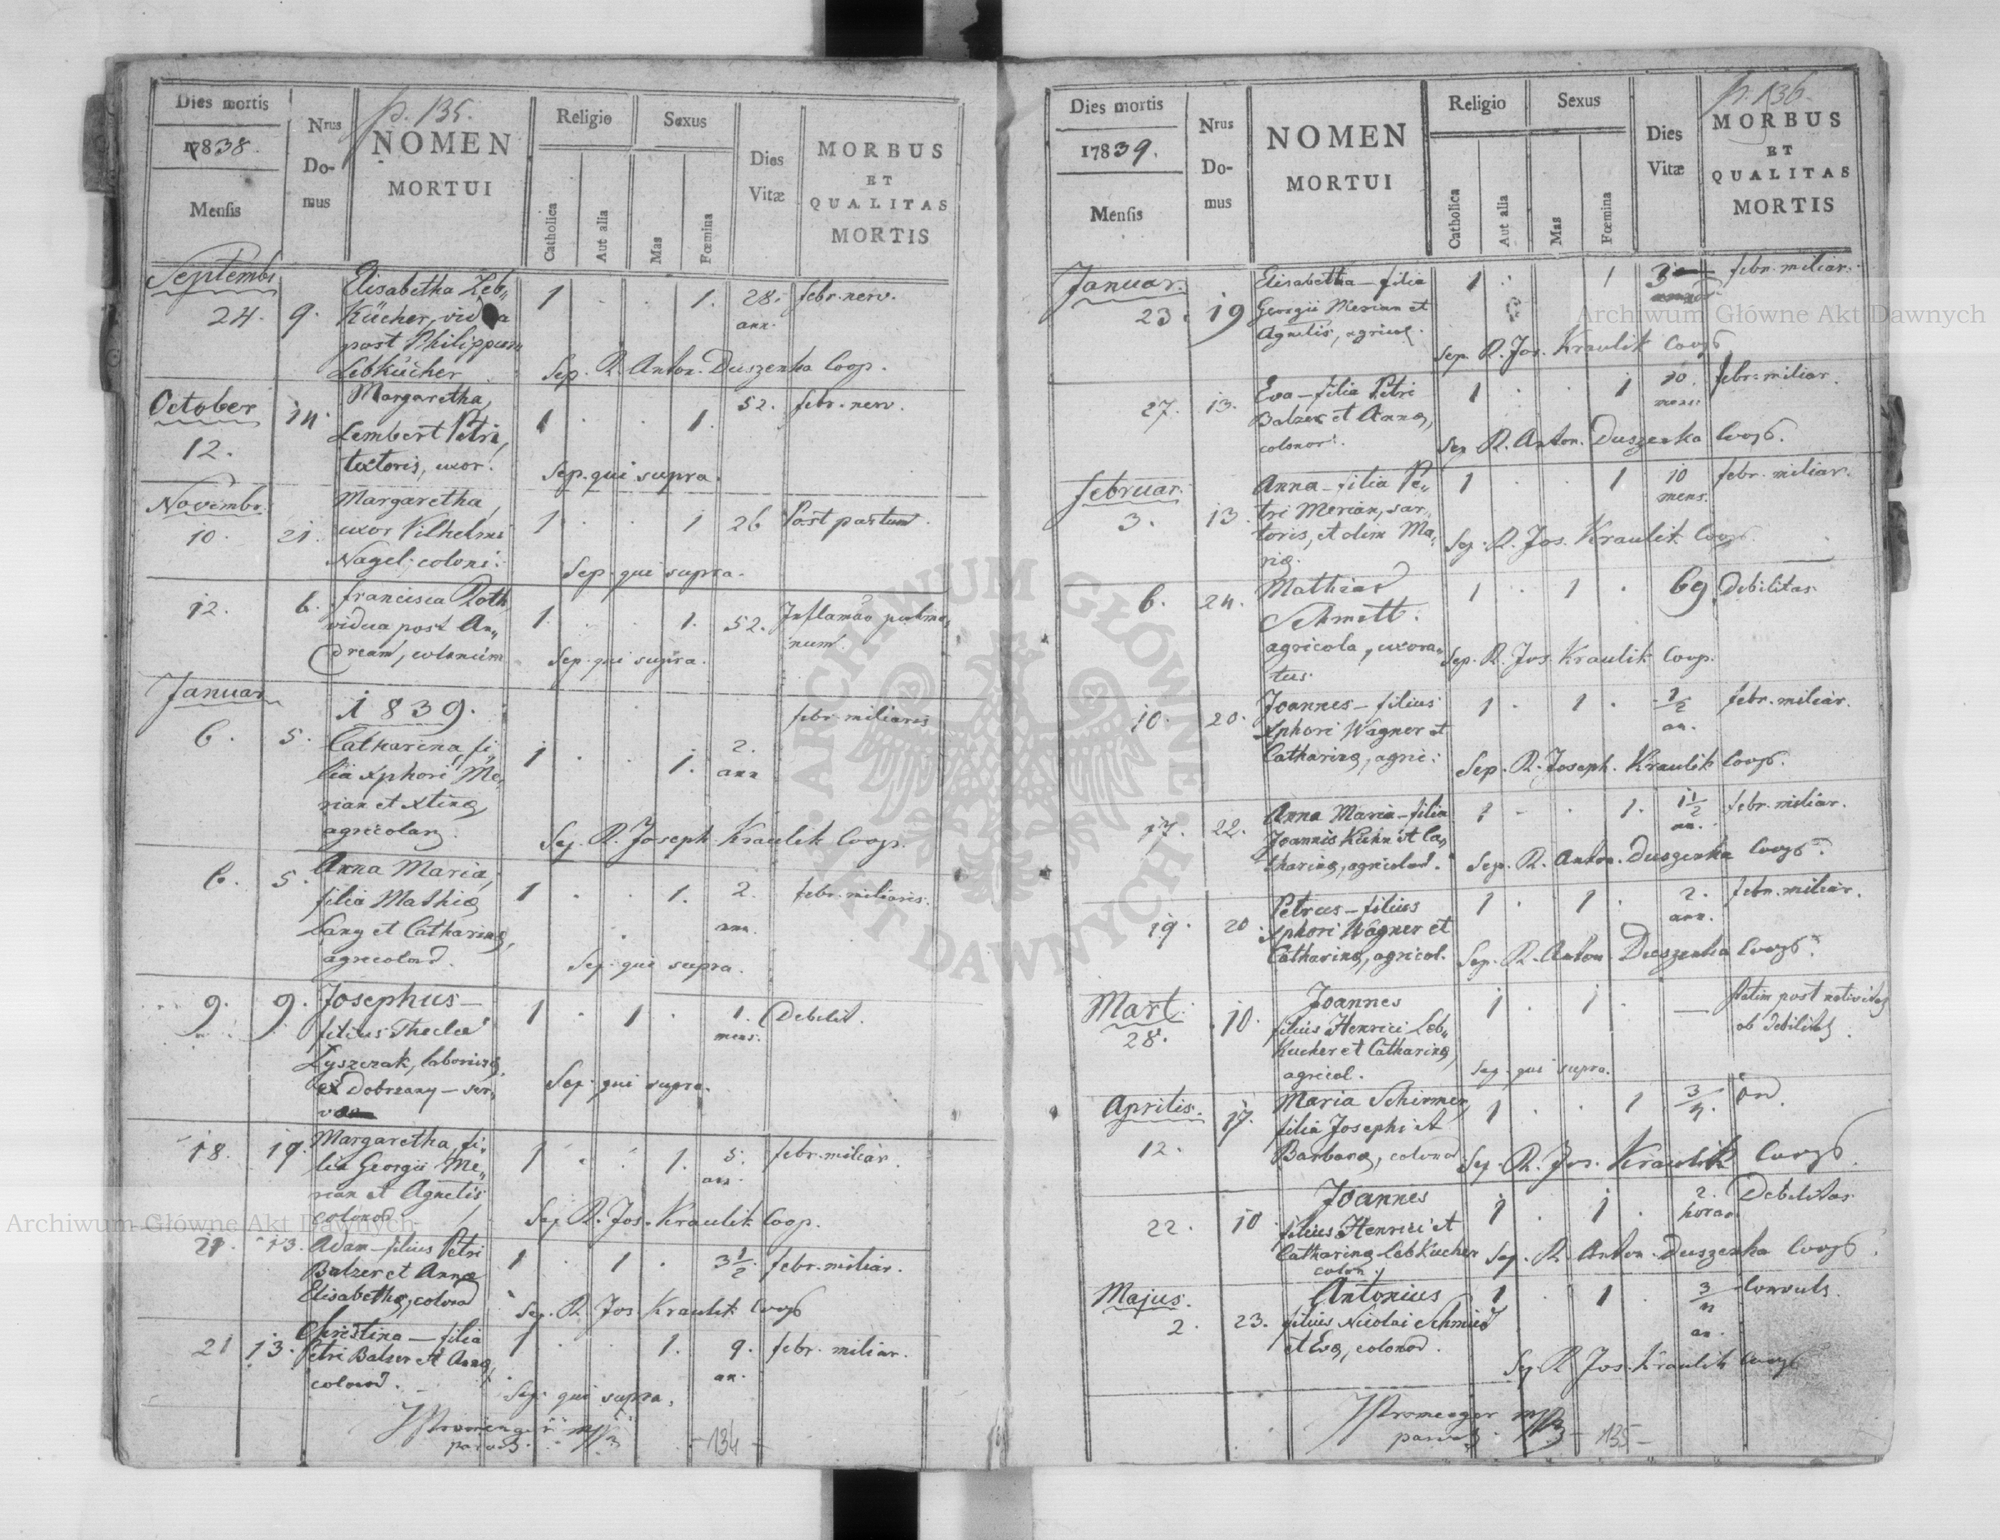 p. 135.
Dies mortis
17838.
Mensis
Nrus
Do-
mus
NOMEN
MORTUI
Religio
Catholica
Aut alia
Sexus
Mas
Fœmina
Dies
Vitæ
MORBUS
ET
QUALITAS
MORTIS
Septembr
24. 9. Elisabetha Leb„ 1 . . 1. 28. febr. nerv.
Kücher, vidua ann.
post Philippum
Lebkücher Sep. R. Anton. Duszenka Coop.
October 14 Margaretha, 1 . . 1. 52. febr. nerv.
12. Lembert Petri,
textoris, uxor. Sep. qui supra.
Novembr. Margaretha,
10. 21. uxor Vilhelmi 1 . . 1 26 Post partum.
Nagel, coloni. Sep. qui supra.
12. 6. Francisca Roth 1. . . 1. 52. Inflamão pulmo„
vidua post An„ num.
dream, colonum Sep. qui supra.
Januar 1839.
6. 5. Catharina, fi„ 1 . . 1. 2. febr. miliaris
lia Xphori Me„ ann
rian et Xtinæ,
agricolar. Sep. R. Joseph. Kraulik Coop.
6. 5. Anna Maria, 1 . . 1. 2. febr. miliaris.
filia Mathiæ ann.
Lang et Catharinæ,
agricolar. Sep. qui supra.
9. 9. Josephus— 1 . 1 . 1. Debilit.
filius Theclæ mens.
Lyszczak,
ex Dobrzany — ser„ Sep. qui supra.
18. 19. Margaretha, fi„ 1 . . 1. 5. febr. miliar.
lia Georgii Me„ ann.
rian et Agnetis
colonor Sep. R. Jos. Kraulik Coop.
21. 13. Adam — filius Petri 1 . 1 . 3½. febr. miliar.
Balzer et Annæ
Elisabethæ, colonor Sep. R. Jos. Kraulik Coop
21 13. Christina — filia 1 . . 1. 9. febr. miliar.
Petri Balzer et Annæ, an.
colonor. Sep. qui supra.
- 134 -
p. 136.
Dies mortis
17839.
Mensis
Nrus
Do-
mus
NOMEN
MORTUI
Religio
Catholica
Aut alia
Sexus
Mas
Fœmina
Dies
Vitæ
MORBUS
ET
QUALITAS
MORTIS
Januar. Elisabetha — filia 1 . 1 3 febr. miliar.
23. 19 Georgii Merian et
Agnetis, agricol. Sep. R. Jos. Kraulik Coop
27. 13. Eva — filia Petri 1 . . 1 10. febr. miliar.
Balzer et Annæ, mens.
colonor. Sep R. Anton. Duszenka Coop.
Februar. Anna — filia Pe„ 1 . . 1 10 febr. miliar.
3. 13. tri Merian, sar„ mens.
toris, et olim Ma„ Sep. R. Jos. Kraulik Coop
riæ.
6. 24. Mathias 1 . 1 . 69. Debilitas
Schmett.
agricola, uxora„ Sep. R. Jos Kraulik Coop.
tus.
10. 20. Joannes — filius 1 . 1 . ½ febr. miliar.
Xphori Wagner et an.
Catharinæ, agric. Sep. R. Joseph. Kraulik Coop.
17. 22. Anna Maria — filia 1 . . 1. 1½ febr. miliar.
Joannis Kühn et Ca„ an.
tharinæ, agricolar. Sep. R. Anton. Duszenka Coop
19. 20 Petrus — filius 1 . 1 . 2. febr. miliar.
Xphori Wagner et ann.
Catharinæ, agricol. Sep. R. Anton Duszenka Coop
Mart. 10. Joannes 1 . 1 . — statim post nativitat
28. filius Henrici Leb„ ob debilitat.
Kucher et Catharinæ,
agricol. Sep. qui supra.
Aprilis. 17. Maria Schirmer, 1 . . 1 ¾. ord.
12. filia Josephi et
Barbaræ, colonor Sep. R. Jos. Kraulik Coop
22. 10 Joannes 1 . 1 . 2. Debilitas
filius Henrici et horar.
Catharinæ Lebkücher Sep. R. Anton. Duszenka Coop.
colon.
Majus. Antonius 1 . 1 . ¾ Convuls.
2. 23. filius Nicolai Schmied an.
et Evæ, colonor. Sep R. Jos. Kraulik Coop
- 135 -
Archiwum Główne Akt Dawnych
Archiwum Główne Akt Dawnych
ARCHIWUM GŁÓWNE AKT DAWNYCH